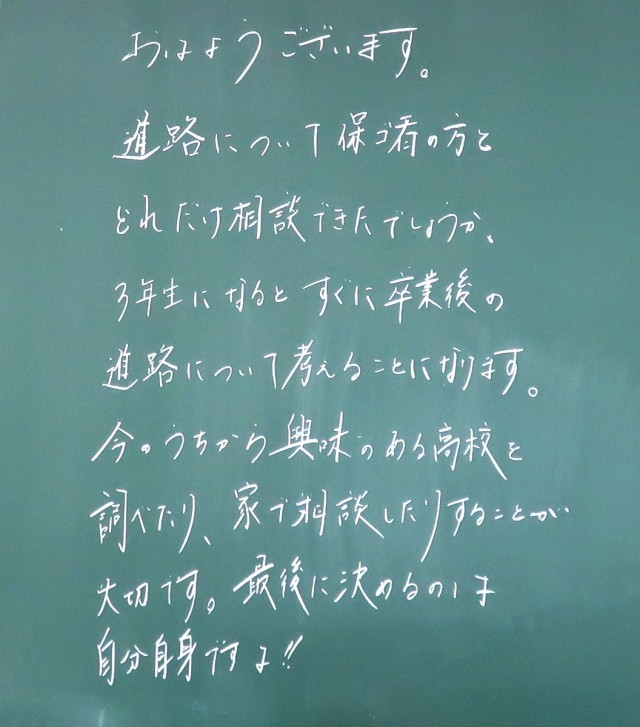 おはようございます。
進路について保ゴ者の方と
どれだけ相談できたでしょうか、
3年生になるとすぐに卒業後の
進路について考えることになります。
今のうちから興味のある高校を
調べたり、家で相談したりすることが
大切です。最後に決めるのは
自分自身ですよ!!